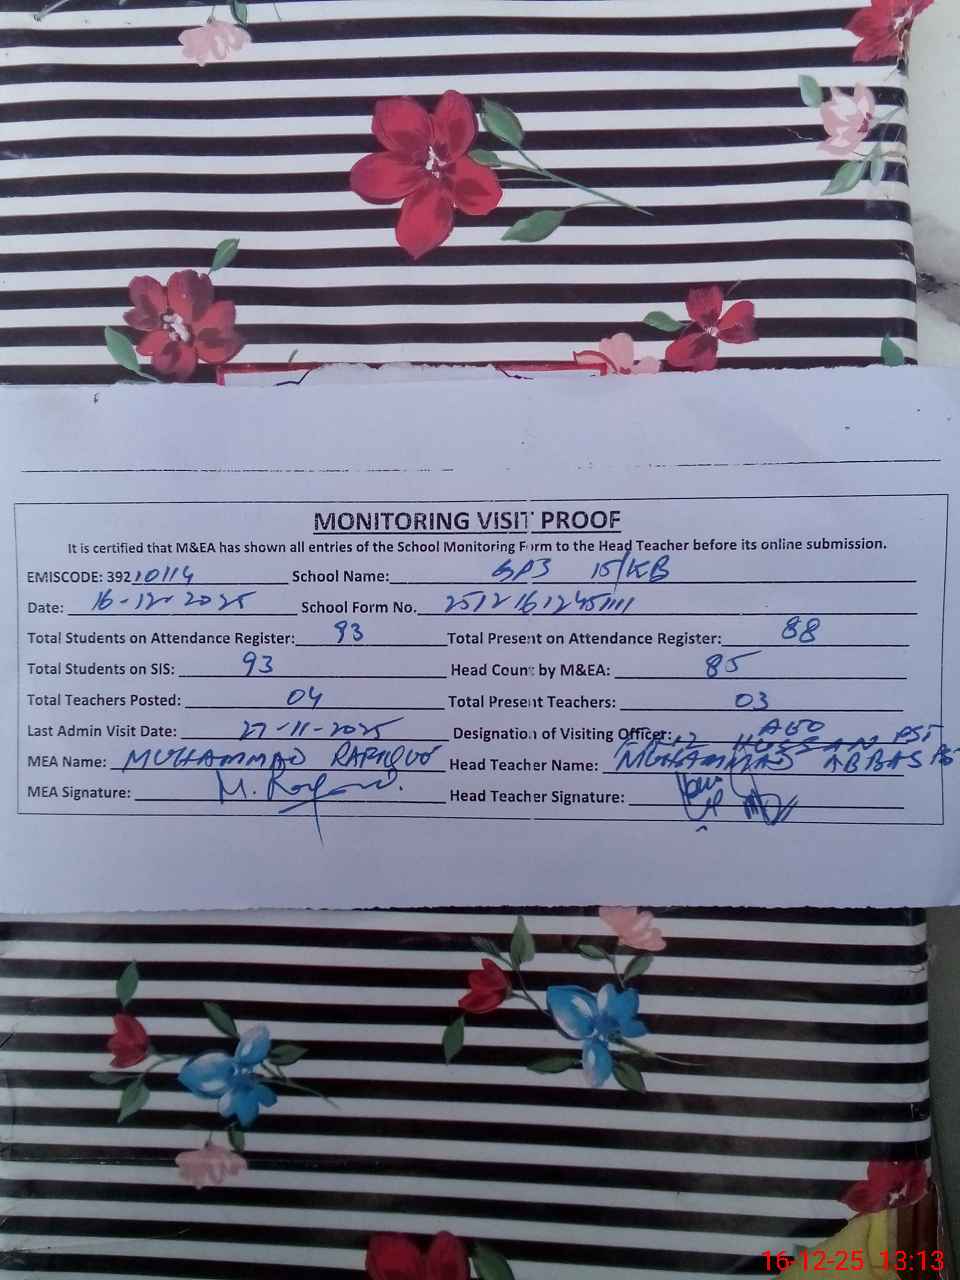 MONITORING VISIT PROOF
It is certified that M&EA has shown all entries of the School Monitoring Form to the Head Teacher before its online submission.
EMISCODE: 39210114 School Name: GPS 15/KB
Date: 16-12-2025 School Form No. 251216124511111
Total Students on Attendance Register: 93 Total Present on Attendance Register: 88
Total Students on SIS: 93 Head Count by M&EA: 85
Total Teachers Posted: 04 Total Present Teachers: 03
Last Admin Visit Date: 27-11-2025 Designation of Visiting Officer: AEO
HUSSAN PST
MEA Name: MUHAMMAD RAFIQUE Head Teacher Name: MUHAMMAD ABBAS
MEA Signature: Head Teacher Signature:
16-12-25 13:13